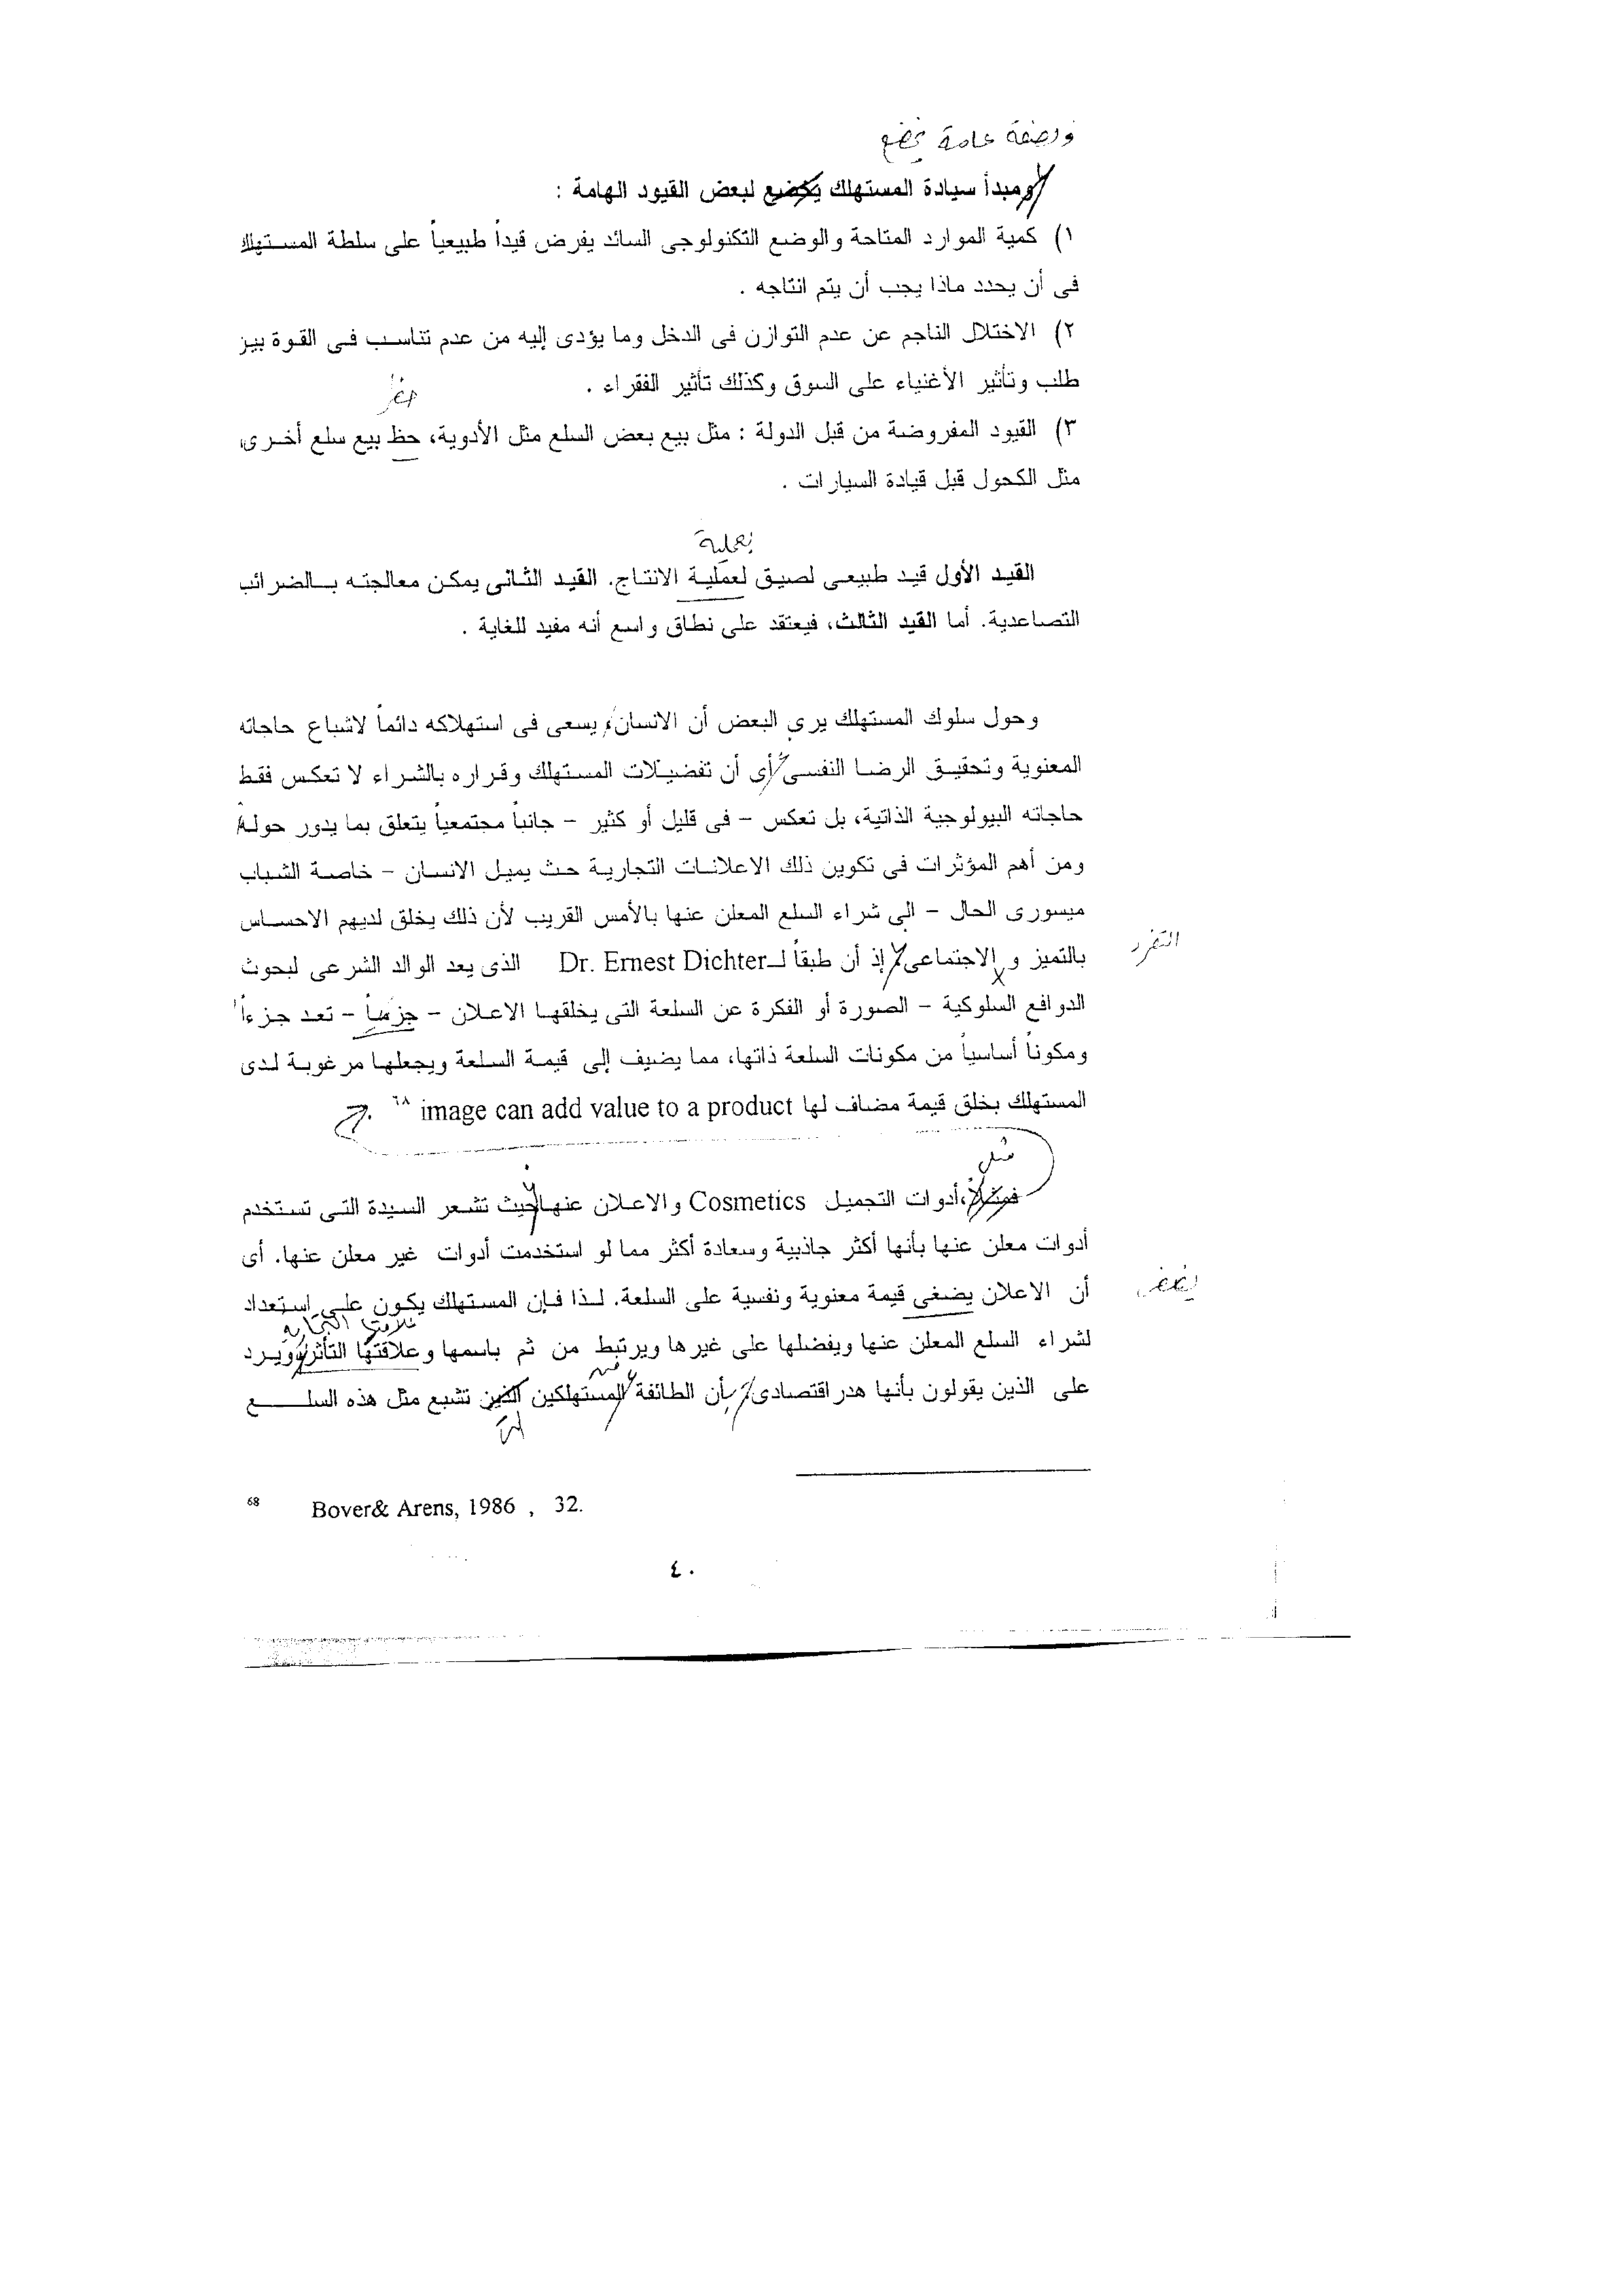 وبصفة عامة يخضع
ومبدأ سيادة المستهلك يخضع لبعض القيود الهامة :
١) كمية الموارد المتاحة والوضع التكنولوجى السائد يفرض قيداً طبيعياً على سلطة المستهلك
فى أن يحدد ماذا يجب أن يتم انتاجه .
٢) الاختلال الناجم عن عدم التوازن فى الدخل وما يؤدى إليه من عدم تناسب فى القوة بين
طلب وتأثير الأغنياء على السوق وكذلك تأثير الفقراء .
٣) القيود المفروضة من قبل الدولة : مثل بيع بعض السلع مثل الأدوية، حظ بيع سلع أخرى
مثل الكحول قبل قيادة السيارات .
بعملية
القيد الأول قيد طبيعى لصيق لعملية الانتاج. القيد الثانى يمكن معالجته بالضرائب
التصاعدية. أما القيد الثالث، فيعتقد على نطاق واسع أنه مفيد للغاية .
وحول سلوك المستهلك يرى البعض أن الانسان يسعى فى استهلاكه دائماً لاشباع حاجاته
المعنوية وتحقيق الرضا النفسى أى أن تفضيلات المستهلك وقراره بالشراء لا تعكس فقط
حاجاته البيولوجية الذاتية، بل تعكس – فى قليل أو كثير – جانباً مجتمعياً يتعلق بما يدور حوله
ومن أهم المؤثرات فى تكوين ذلك الاعلانات التجارية حث يميل الانسان – خاصة الشباب
ميسورى الحال – الى شراء السلع المعلن عنها بالأمس القريب لأن ذلك يخلق لديهم الاحساس
التفرد
بالتميز و الاجتماعى إذ أن طبقاً لـ Dr. Ernest Dichter الذى يعد الوالد الشرعى لبحوث
الدوافع السلوكية – الصورة أو الفكرة عن السلعة التى يخلقها الاعلان – – تعد جزءاً
ومكوناً أساسياً من مكونات السلعة ذاتها، مما يضيف إلى قيمة السلعة ويجعلها مرغوبة لدى
المستهلك بخلق قيمة مضاف لها image can add value to a product ٦٨ .
مثل
فمثلاً، أدوات التجميل Cosmetics والاعلان عنها حيث تشعر السيدة التى تستخدم
أدوات معلن عنها بأنها أكثر جاذبية وسعادة أكثر مما لو استخدمت أدوات غير معلن عنها. أى
أن الاعلان يضغى قيمة معنوية ونفسية على السلعة. لذا فإن المستهلك يكون على استعداد
علامتها التجارية
لشراء السلع المعلن عنها ويفضلها على غيرها ويرتبط من ثم باسمها وعلاقتها التأثر ويرد
من
على الذين يقولون بأنها هدر اقتصادى بأن الطائفة المستهلكين الذين تشبع مثل هذه السلع
التى
68 Bover& Arens, 1986 , 32.
٤٠